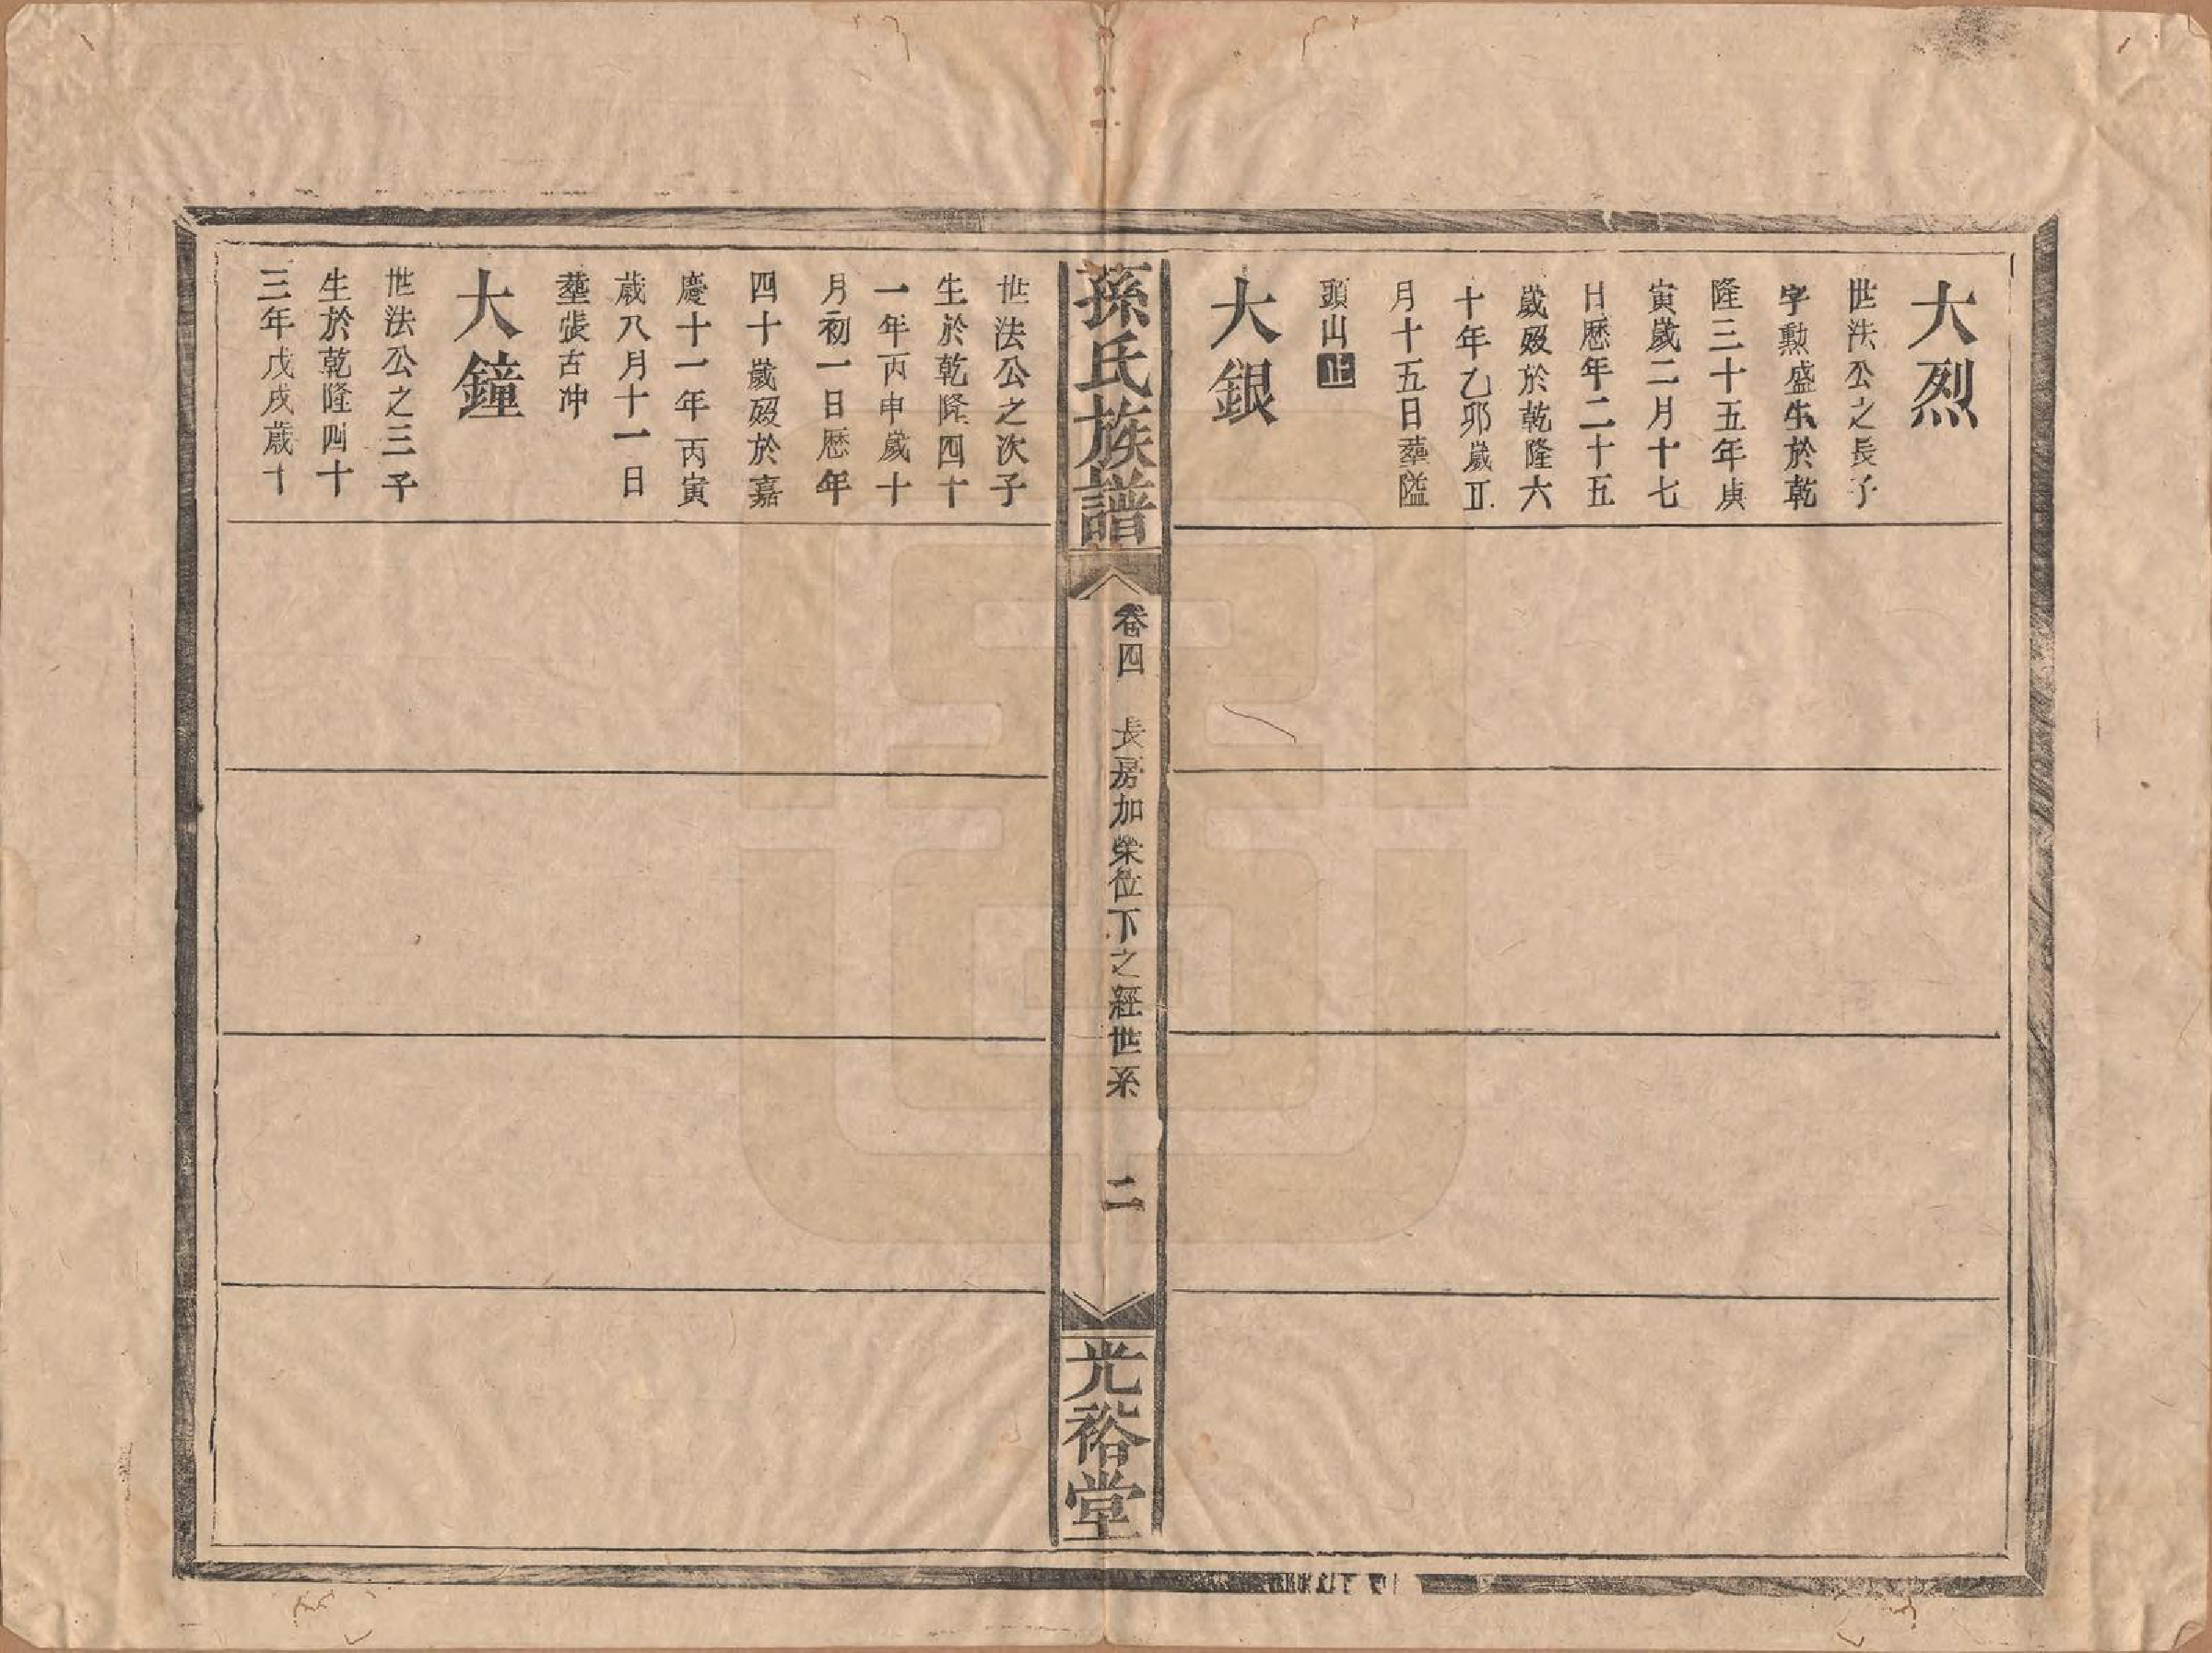 大烈
世法公之長子
字勲盛生於乾
隆三十五年庚
寅歲二月十七
日歴年二十五
歲殁於乾隆六
十年乙卯歲五
月十五日葬隘
頭山止
大銀
孫氏族譜
卷四
長房加榮位下之經世系
二
光裕堂
世法公之次子
生於乾隆四十
一年丙申歲十
月初一日歴年
四十歲殁於嘉
慶十一年丙寅
歲八月十一日
塟張古冲
大鐘
世法公之三子
生於乾隆四十
三年戊戌歲十